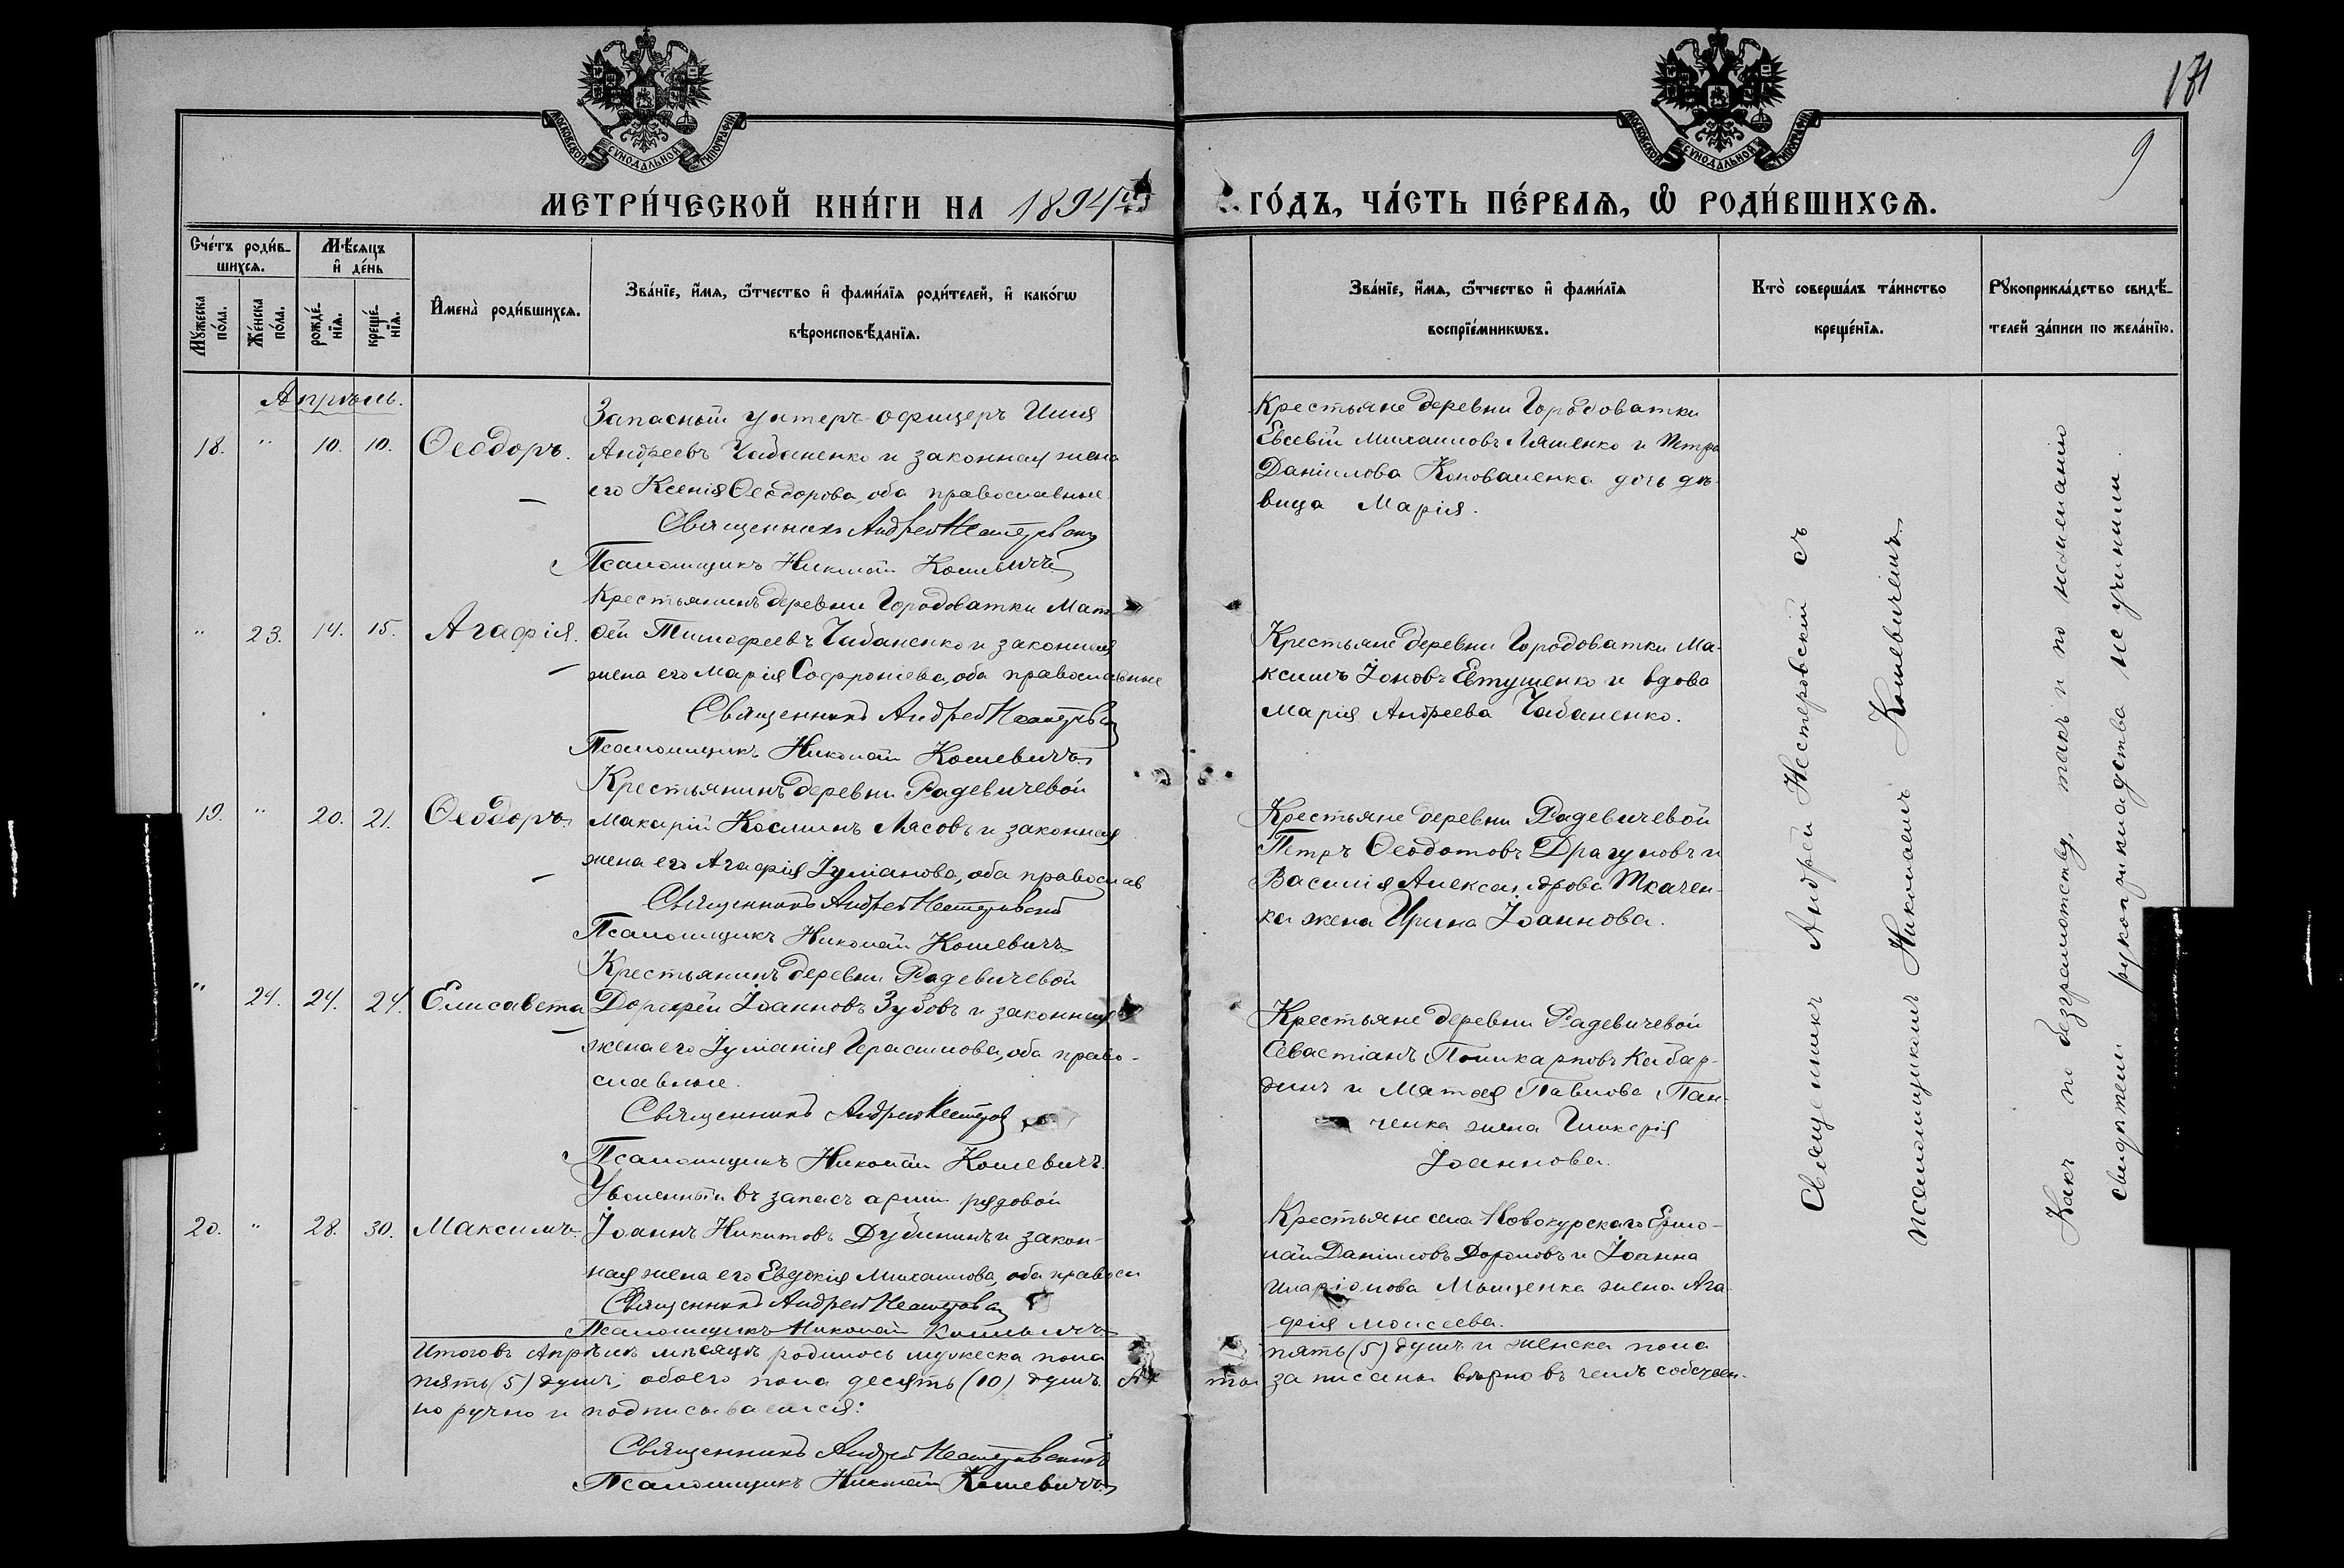 МОСКОВСКОЙ СѴНОДАЛЬНОЙ ТИПОГРАФІИ
МОСКОВСКОЙ СѴНОДАЛЬНОЙ ТИПОГРАФІИ
171
9
МЕТРИ́ЧЕСКОЙ КНИ́ГИ НА 1894й
ГО́ДЪ, ЧА́СТЬ ПЕ́РВАѦ, Ѡ РОДИ́ВШИХСѦ.
Сче́тъ роди́в-
шихсѧ.
Мѣ́сѧцъ
и҆ де́нь
Мꙋ́жеска по́ла.
Же́нска по́ла.
рожде́нїѧ.
креще́нїѧ.
И҆мена̀ роди́вшихсѧ.
Зва́нїе, и҆́мѧ, ѻ҆́тчество и҆ фами́лїѧ роди́телей, и҆ како́гѡ
вѣроисповѣ́данїѧ.
Зва́нїе, и҆́мѧ, ѻ҆́тчество и҆ фами́лїѧ
воспрїе́мникѡвъ.
Кто̀ соверша́лъ та́инство
креще́нїѧ.
Рꙋкоприкла́дство свидѣ́-
телей за́писи по жела́нїю.
Апрѣль.
18. " 10. 10. Ѳеодоръ.
Запасный унтеръ-офицеръ Илія
Андреевъ Чабаненко и законная жена
его Ксенія Ѳеодорова, оба православные.
Священникъ Андрей Нестеровскій
Псаломщикъ Николай Кошевичъ
Крестьяне деревни Городоватки
Евсевій Михаиловъ Ляшенко и Петра
Даніилова Коноваленка дочь дѣ-
вица Марія.
" 23. 14. 15. Агафія.
Крестьянинъ деревни Городоватки Мат-
ѳей Тимофеевъ Чабаненко и законная
жена его Марія Софроніева, оба православные
Священникъ Андрей Нестеровскій
Псаломщикъ Николай Кошевичъ
Крестьяне деревни Городоватки Ма-
ксимъ Іоновъ Евтушенко и вдова
Марія Андреева Чабаненко.
19. " 20. 21. Ѳеодоръ
Крестьянинъ деревни Радевичевой
Макарій Косминъ Лясовъ и законная
жена его Агафія Іуліанова, оба православ
Священникъ Андрей Нестеровскій
Псаломщикъ Николай Кошевичъ
Крестьяне деревни Радевичевой
Петръ Ѳеодотовъ Драгуновъ и
Василія Александрова Ткачен-
ка жена Ирина Іоаннова.
" 24. 24. 24. Елисавета
Крестьянинъ деревни Радевичевой
Дорофей Іоанновъ Зубовъ и законная
жена его Іуліанія Герасимова, оба право-
славные.
Священникъ Андрей Нестеровскій
Псаломщикъ Николай Кошевичъ.
Крестьяне деревни Радевичевой
Севастіанъ Поликарповъ Кабар-
динъ и Матѳея Павлова Пан-
ченка жена Гликерія
Іоаннова.
20. " 28. 30. Максимъ
Уволенный въ запасъ арміи рядовой
Іоаннъ Никитовъ Дубининъ и закон-
ная жена его Евдокія Михаилова, оба правосл
Священникъ Андрей Нестеровскій
Псаломщикъ Николай Кошевичъ
Крестьяне села Новокурскаго Ермо-
лай Даніиловъ Дороновъ и Іоанна
Иларіонова Мищенка жена Ага-
фія Моисеева.
Священникъ Андрей Нестеровскій съ
псаломщикомъ Николаемъ Кошевичемъ
Какъ по безграмотству, такъ и по нежеланію
свидѣтели рукоприкладства не учинили.
Итого въ Апрѣлѣ мѣсяцѣ родилось мужеска пола пять (5) душъ и женска пола
пять (5) душъ, обоего пола десять (10) душъ. записаны вѣрно въ чемъ собствен-
норучно и подписываемся:
Священникъ Андрей Нестеровскій
Псаломщикъ Николай Кошевичъ